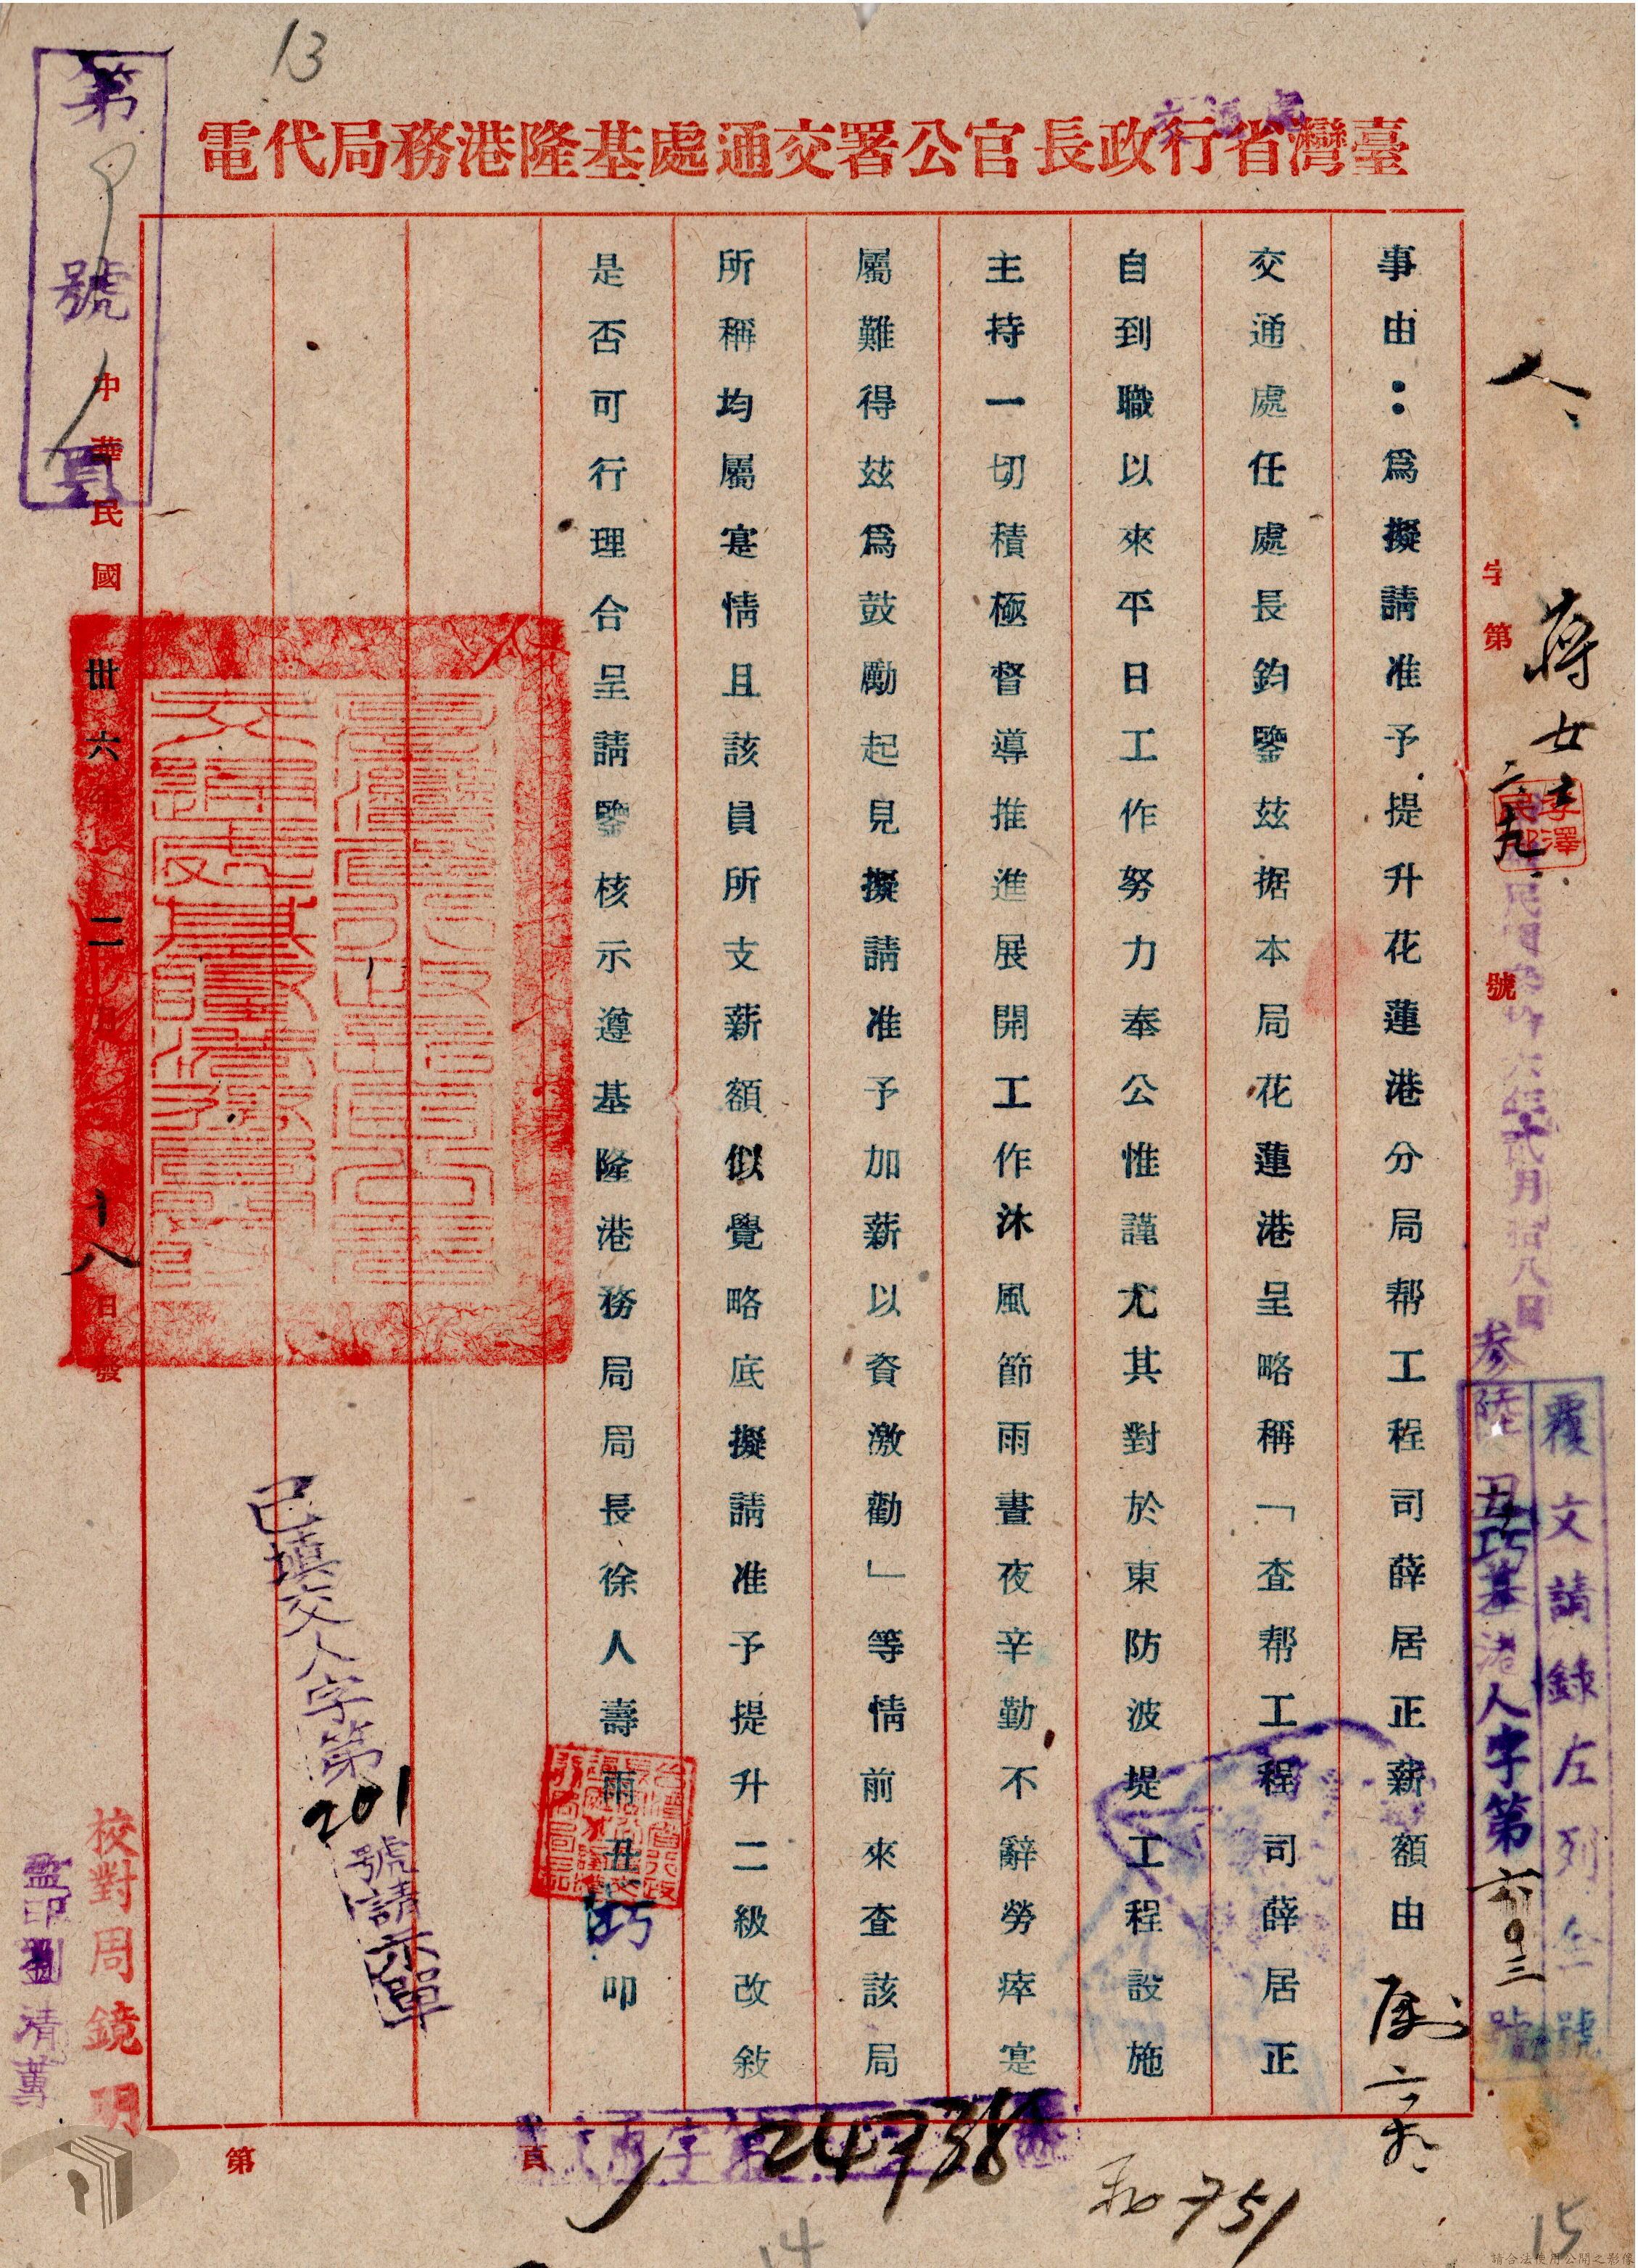 13
臺灣省行政長官公署交通處基隆港務局代電
人
字第 號
蔣女士
李澤民印
民國參拾六年貳月拾八日
覆文請錄左列全號
參陸丑巧基港人字第 號
事由：爲擬請准予提升花蓮港分局帮工程司薛居正薪額由
交通處任處長鈞鑒茲据本局花蓮港呈略稱「查帮工程司薛居正
自到職以來平日工作努力奉公惟謹尤其對於東防波堤工程設施
主持一切積極督導推進展開工作沐風節雨晝夜辛勤不辭勞瘁寔
屬難得茲爲鼓勵起見擬請准予加薪以資激勸」等情前來查該局
所稱均屬寔情且該員所支薪額似覺略底擬請准予提升二級改敍
是否可行理合呈請鑒核示遵基隆港務局局長徐人壽雨丑巧叩
已填交人字第201號請示單
中華民國卅六年二月十八日發
第 號 頁
校對周鏡明
監印劉清萬
第 頁
24738
751
14
15
請合法使用公開之影像